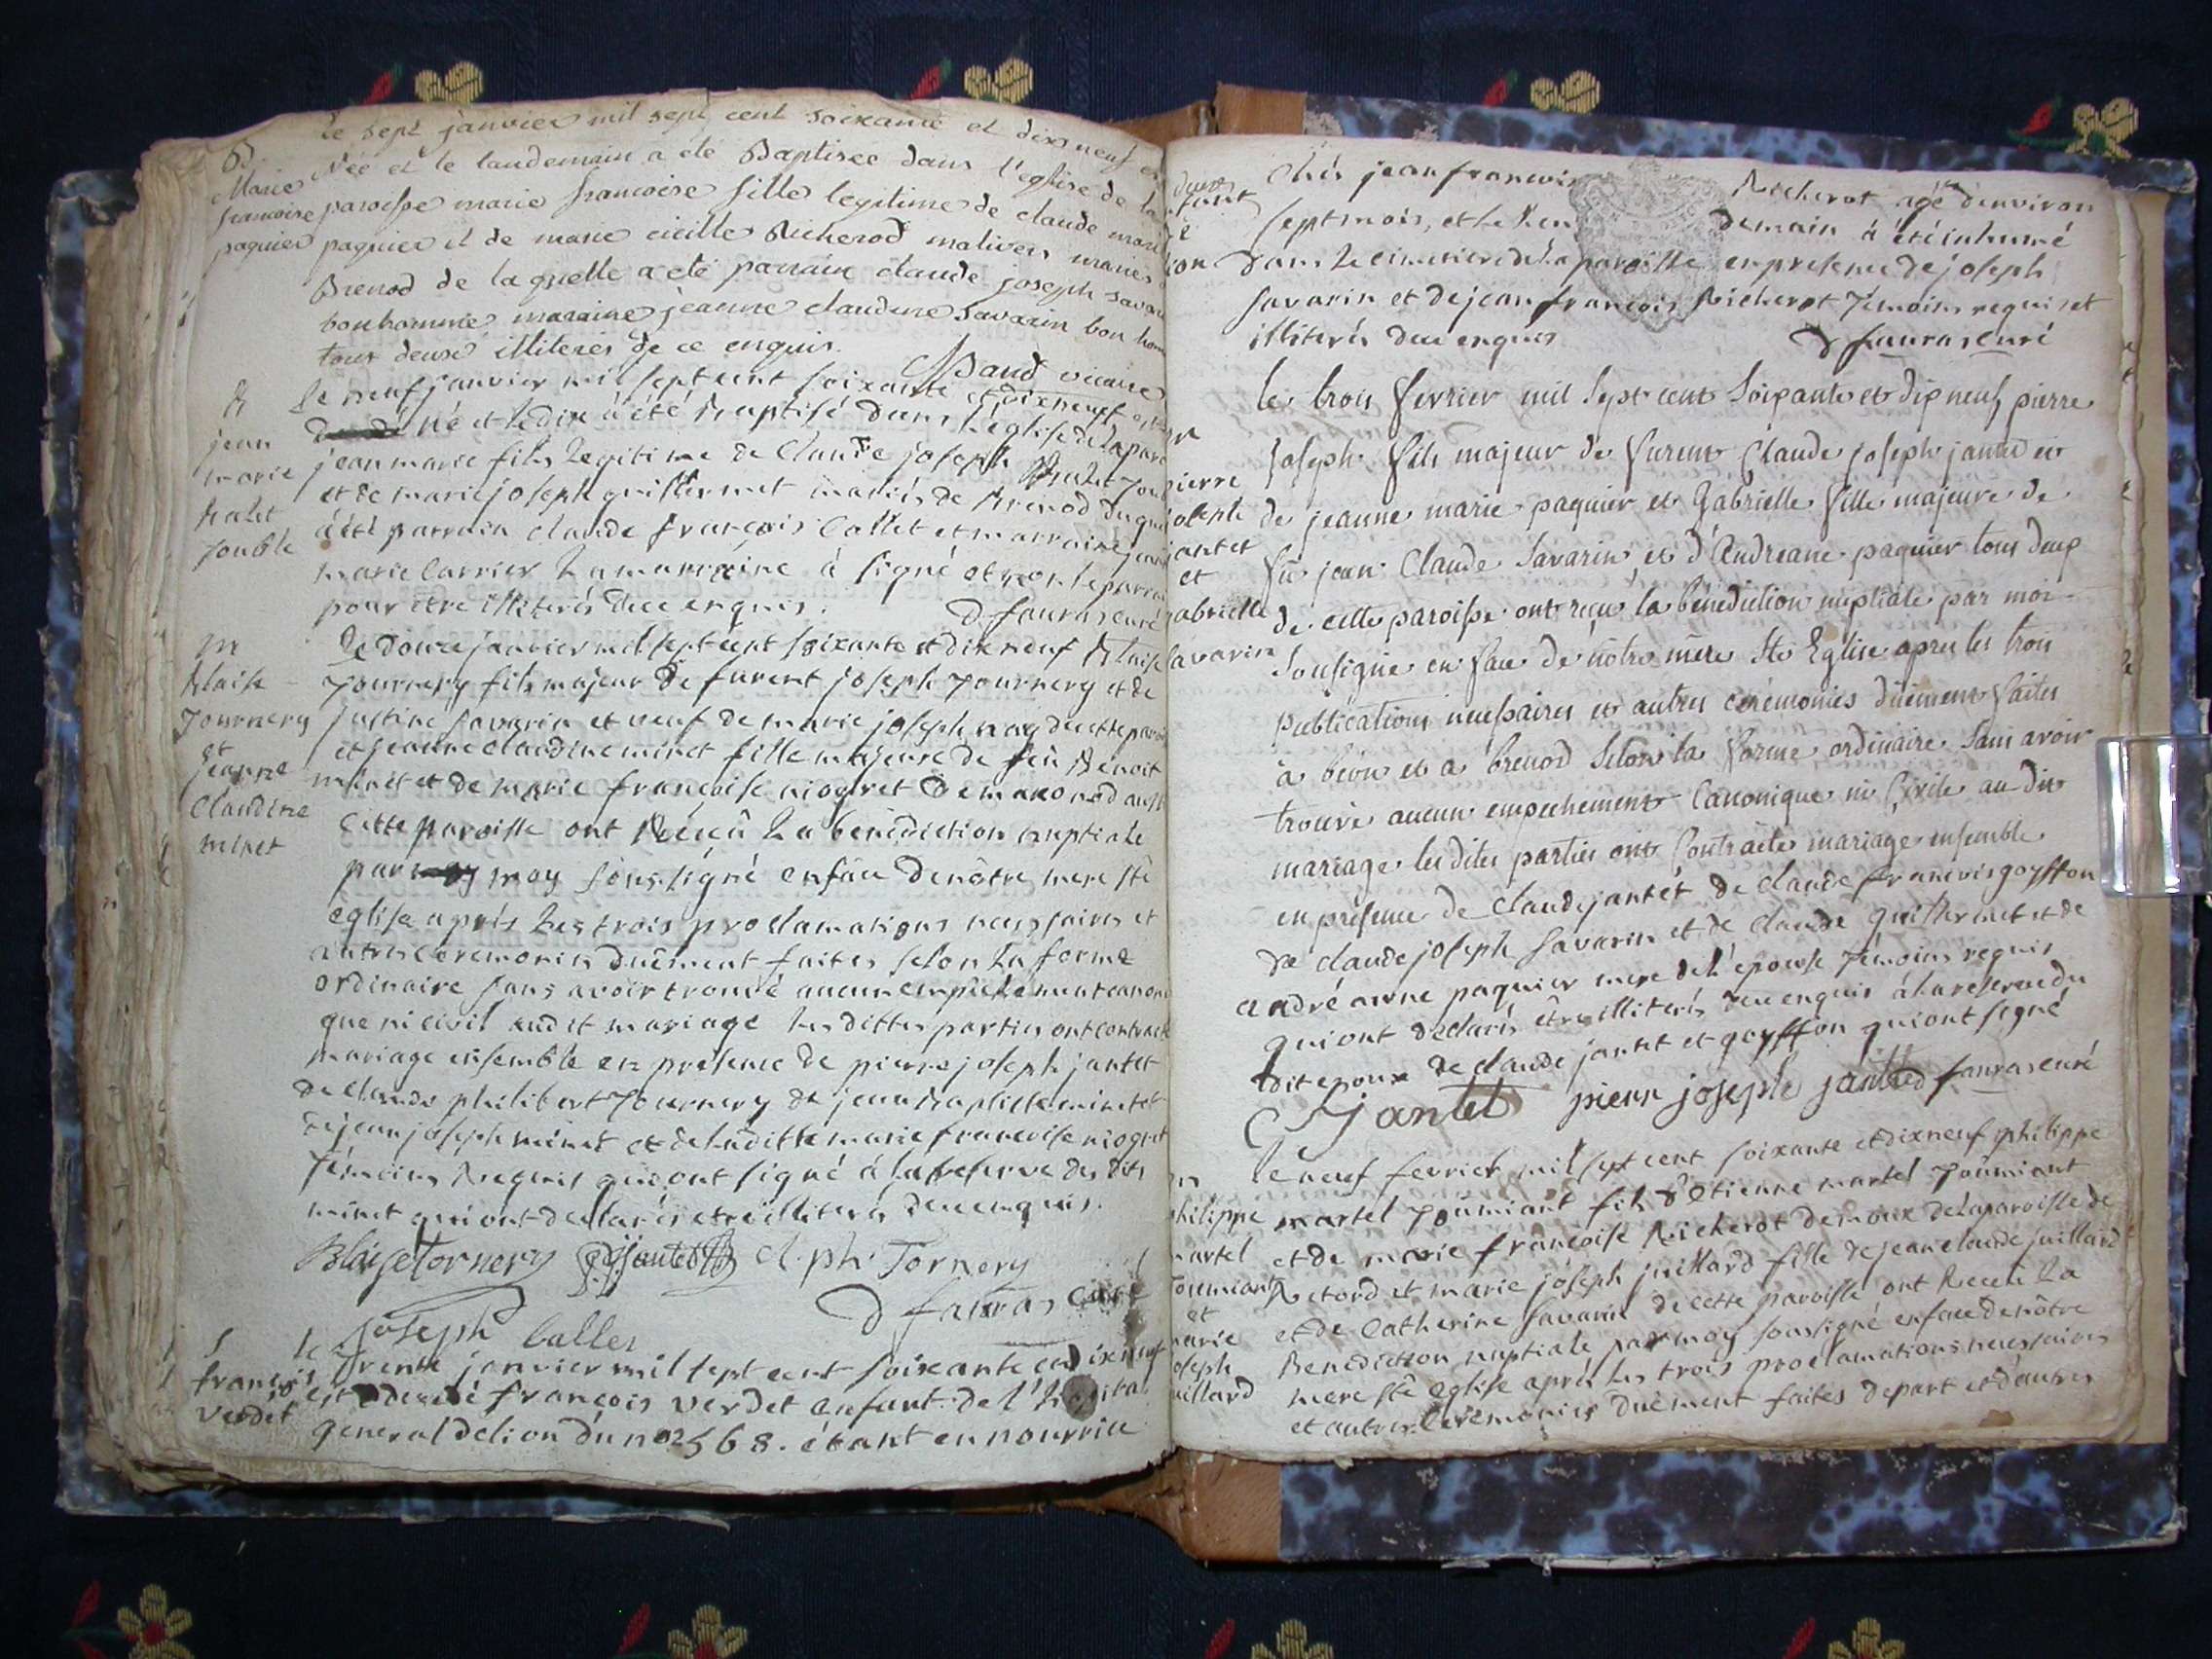 Le sept janvier mil sept cent soixante et dix neuf est
B
Marie
francoise
paquier
Née et le landemain a été Baptisée dans l'eglise de la
paroisse marie francoise fille legitime de claude marie
paquier et de marie cicille Richerod mariés
Brenod de laquelle a été parrain claude joseph savarin
bonhomme maraine jeanne claudine Savarin bon hom
tous deux illiterés de ce enquis.
vicaire
B
jean
marie
balet
Le neuf janvier mil sept cent soixante et dix neuf est
né et le dix a été baptisé dans l'église de la paro
jean marie fils legitime de Claude joseph
et de marie joseph guillermet mariés de brenod duquel
a été parrain claude françois Collet et marraine jeanne
marie Carrier la marraine à signé et non le parrain
pour être illiterés de ce enquis.
D fauras curé
m
blaise
Tournery
et
jeanne
Claudine
minet
Le douze janvier mil sept cent soixante et dix neuf Blaise
Tournery fils majeur de furent joseph Tournery et de
justine Savarin et veuf de marie joseph nay de cette paroi
et jeanne claudine minet fille majeure de feu Benoit
minet et de marie francoise niogret de aussi
cette paroisse ont Reçeû La bénédiction nuptiale
par moy sous signé en face de nôtre mere ste
eglise après Les trois proclamations necessaires et
autres Ceremonies duëment faites selon La forme
ordinaire sans avoir trouvé aucun empêchement canoni
que ni civil audit mariage les dittes parties ont contracté
mariage ensemble en présence de pierre joseph jantet
de claude philibert Tournery de jean baptiste minet et
de jean joseph minet et de laditte marie francoise niogret
Témoins Requis qui ont signé à la reserve des dits
minet qui ont declarés etre illiterés de ce enquis.
Blaise tornery P J jantet cl. ph. Tornery
D fauras curé
joseph Callet
S
francois
verdet
le trente janvier mil sept cent soixante et dix neuf
est decedé françois verdet enfant de l'hopital
general de lion du n° 2568. étant en nourrice
chés jean francois Richerot agé d'environ
sept mois, et le len demain à été inhumé
dans le cimetiere de la paroisse en présence de joseph
Savarin et de jean françois Richerot Témoins requis et
illiterés de ce enquis D fauras curé
pierre
joseph
jantet
et
gabrielle
Savarin
le trois fevrier mil sept cent soixante et dix neuf pierre
joseph fils majeur de furent Claude joseph jantet et
de jeanne marie paquier et Gabrielle fille majeure de
fû jean Claude Savarin et d'Andreane paquier tous deux
de cette paroisse ont reçu la bénédiction nuptiale par moi
Soussigné en face de nôtre mère Ste Eglise apres les trois
publications necessaires et autres cérémonies dûement faites
à béon et a brenod selon la forme ordinaire sans avoir
trouvé aucun empechement Canonique ni Civile au dit
mariage les dites parties ont Contracté mariage ensemble
en présence de claude jantet de claude francois goyffon
de claude joseph Savarin et de claude guillermet et de
andréanne paquier mere de l'épouse Témoins requis
qui ont declarés être illiterés de ce enquis à la reserve du
dit epoux de claude jantet et goyffon qui ont signé
C jantet pierre joseph jantet D fauras curé
philippe
martel
et
marie
joseph
juillard
le neuf fevrier mil sept cent soixante et dix neuf philippe
martel poumiant fils d'Etienne martel poumiant
et de marie francoise Richerot de la paroisse de
Retord et marie joseph juillard fille de jean claude juillard
et de Catherine Savarin de cette paroisse ont Receû La
Benediction nuptiale par moy sous signé en face de nôtre
mere ste eglise après les trois proclamations necessaires
et autres Cérémonies duëment faites de part et d'autres